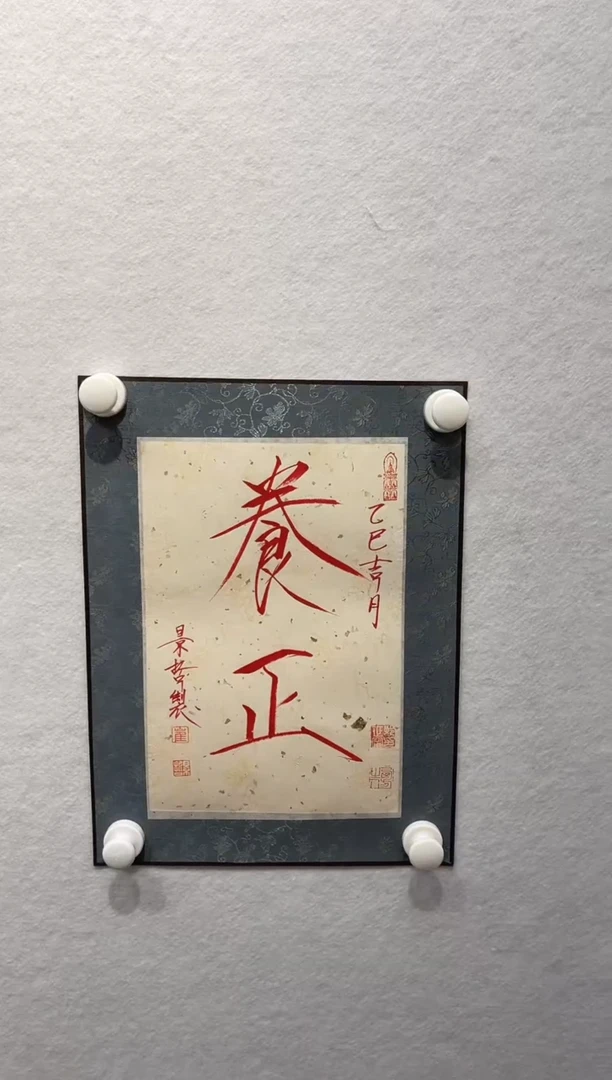 養正
乙巳吉月
景哲製